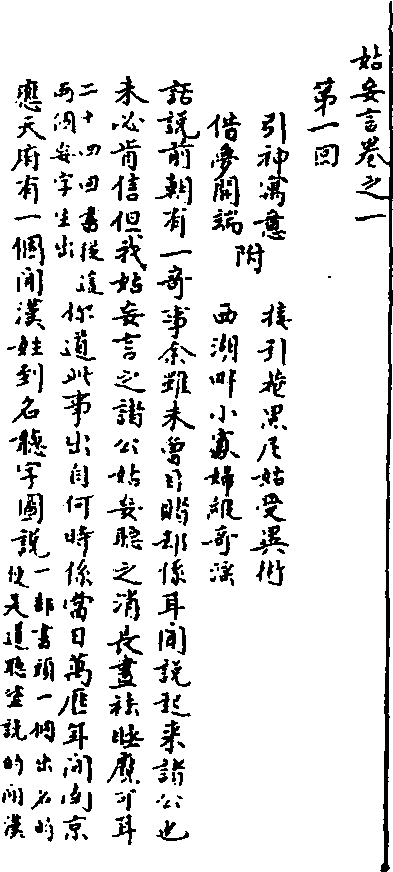 姑妄言卷之一
第一回
引神寓意 接引菴黑尼姑受異術
借夢開端 附 西湖畔小寡婦縱奇淫
話說前朝有一奇事余雖未曾目睹却係耳聞說起来諸公也
未必肯信但我姑妄言之諸公姑妄聽之消長晝祛睡魔可耳
二十四回書從這
兩個妄字生出 你道此事出自何時係當日萬曆年間南京
應天府有一個閒漢姓到名聽字圖說 一部書頭一個出名的
便是道聽塗說的閒漢